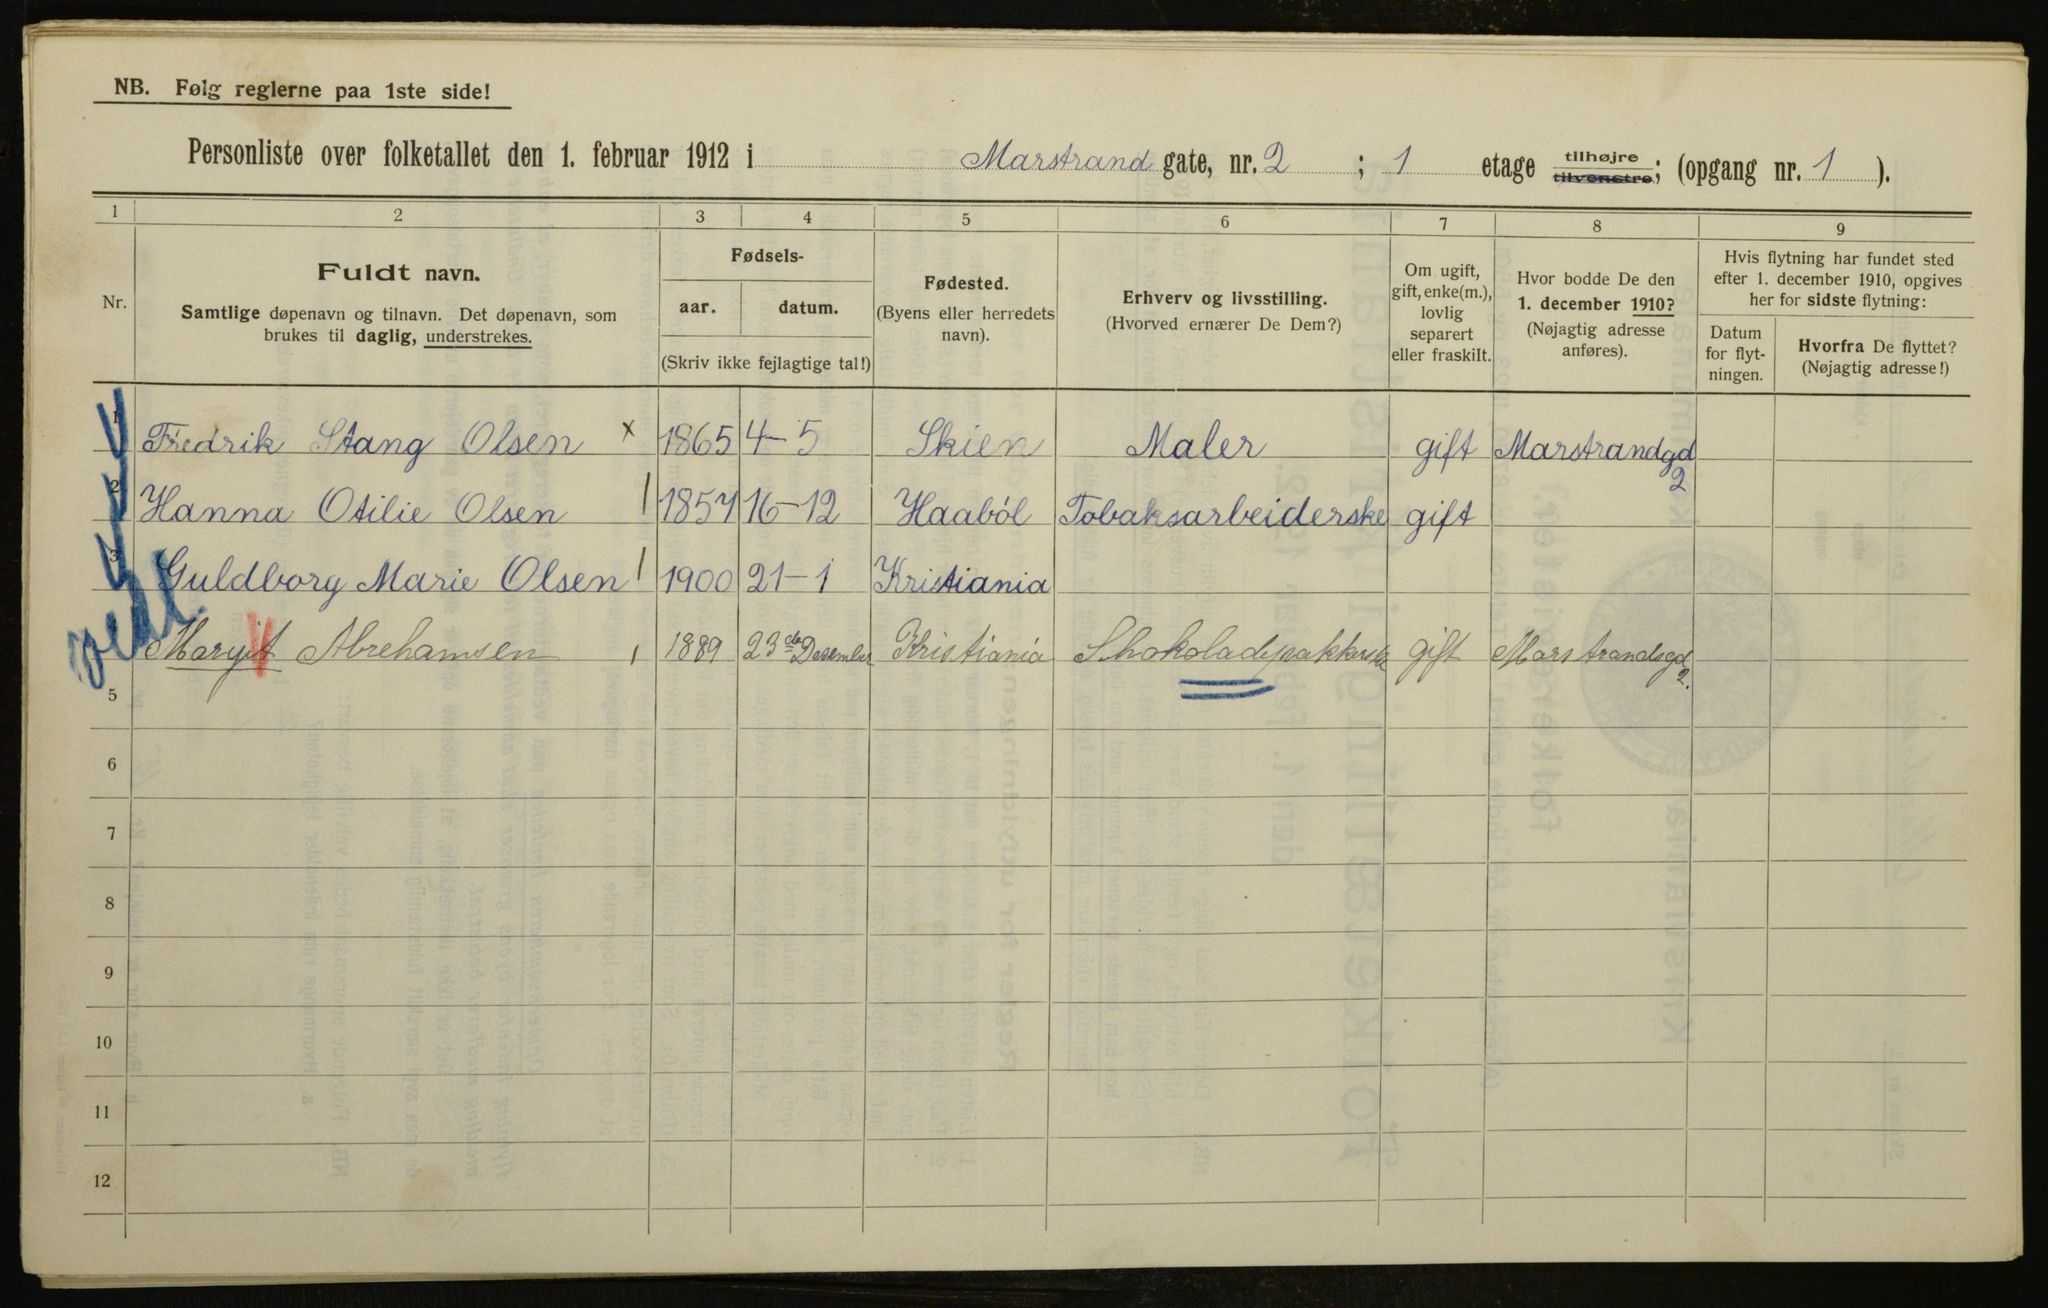 NB. Følg reglerne paa 1ste side!
Personliste over folketallet den 1. februar 1912 i Marstrand gate, nr. 2 ; 1 etage tilhøjre tilvenstre; (opgang nr. 1 ).
1 2 3 4 5 6 7 8 9
Nr.
Fuldt navn.
Samtlige døpenavn og tilnavn. Det døpenavn, som
brukes til daglig, understrekes.
Fødsels-
aar. datum.
(Skriv ikke fejlagtige tal!)
Fødested.
(Byens eller herredets
navn).
Erhverv og livsstilling.
(Hvorved ernærer De Dem?)
Om ugift,
gift, enke(m.),
lovlig
separert
eller fraskilt.
Hvor bodde De den
1. december 1910?
(Nøjagtig adresse
anføres).
Hvis flytning har fundet sted
efter 1. december 1910, opgives
her for sidste flytning:
Datum
for flyt-
ningen.
Hvorfra De flyttet?
(Nøjagtig adresse!)
1 Fredrik Stang Olsen x 1865 4-5 Skien Maler gift Marstrandgd 2
2 Hanna Otilie Olsen 1857 16-12 Haaból Tobaksarbeiderske gift
3 Guldborg Marie Olsen 1900 21-1 Kristiania
4 Maryit Abrehamsen 1889 23de Desember Kristiania Shokoladepakkerske gift Marstrandsgd 2.
5
6
7
8
9
10
11
12